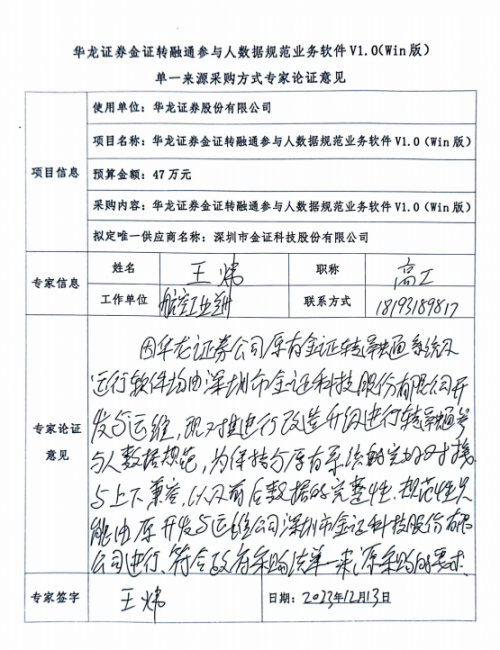 华龙证券金证转融通参与人数据规范业务软件V1.0(Win版)
单一来源采购方式专家论证意见
项目信息
使用单位：华龙证券股份有限公司
项目名称：华龙证券金证转融通参与人数据规范业务软件V1.0（Win版）
预算金额：47万元
采购内容：华龙证券金证转融通参与人数据规范业务软件V1.0（Win版）
拟定唯一供应商名称：深圳市金证科技股份有限公司
专家信息
姓名 王炜 职称 高工
工作单位 航空工业 联系方式 18193189817
专家论证
意见
因华龙证券公司原有金证转融通系统及
运行软件均由深圳市金证科技股份有限公司开
发与运维，现对其进行改造升级进行转融通参
与人数据规范，为保持与原有系统的完好对接
与上下兼容，以及前后数据的完整性、规范性只
能由原开发与运维公司深圳市金证科技股份有限
公司进行、符合政府采购法单一来源采购的要求.
专家签字 王炜 日期：2023年12月13日